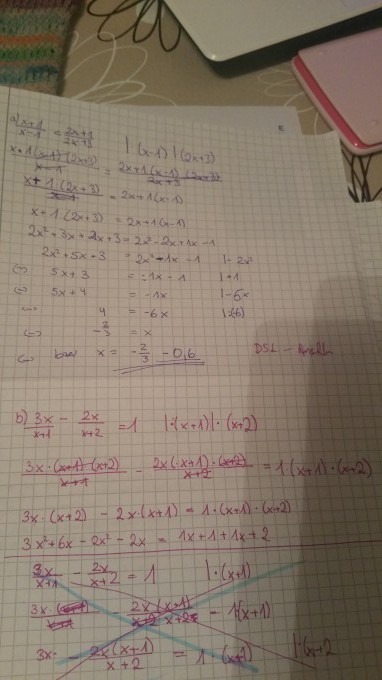 a) x+1/x-1 = 2x+1/2x+3 | (x-1) | (2x+3)
x+1(x-1)(2x+3)/x-1 = 2x+1(x-1)(2x+3)/2x+3
x+1(2x+3)/x-1 = 2x+1(x-1)
x+1(2x+3) = 2x+1(x-1)
2x²+3x+2x+3 = 2x²-2x+1x-1
2x²+5x+3 = 2x²-1x-1 |-2x²
5x+3 = -1x-1 |+1
5x+4 = -1x |-5x
4 = -6x |:(-6)
-2/3 = x
bzw x = -2/3 -0,6
b) 3x/x+1 - 2x/x+2 = 1 |·(x+1)|·(x+2)
3x·(x+1)·(x+2)/x+1 - 2x(·x+1)·(x+2)/x+2 = 1·(x+1)·(x+2)
3x·(x+2) - 2x·(x+1) = 1·(x+1)·(x+2)
3x²+6x-2x²-2x = 1x+1+1x+2
3x/x+1 - 2x/x+2 = 1 |·(x+1)
3x(x+1)/x+1 - 2x(x+1)/x+2 = 1(x+1)
3x· - 2x(x+1)/x+2 = 1 (x+1) |·(x+2